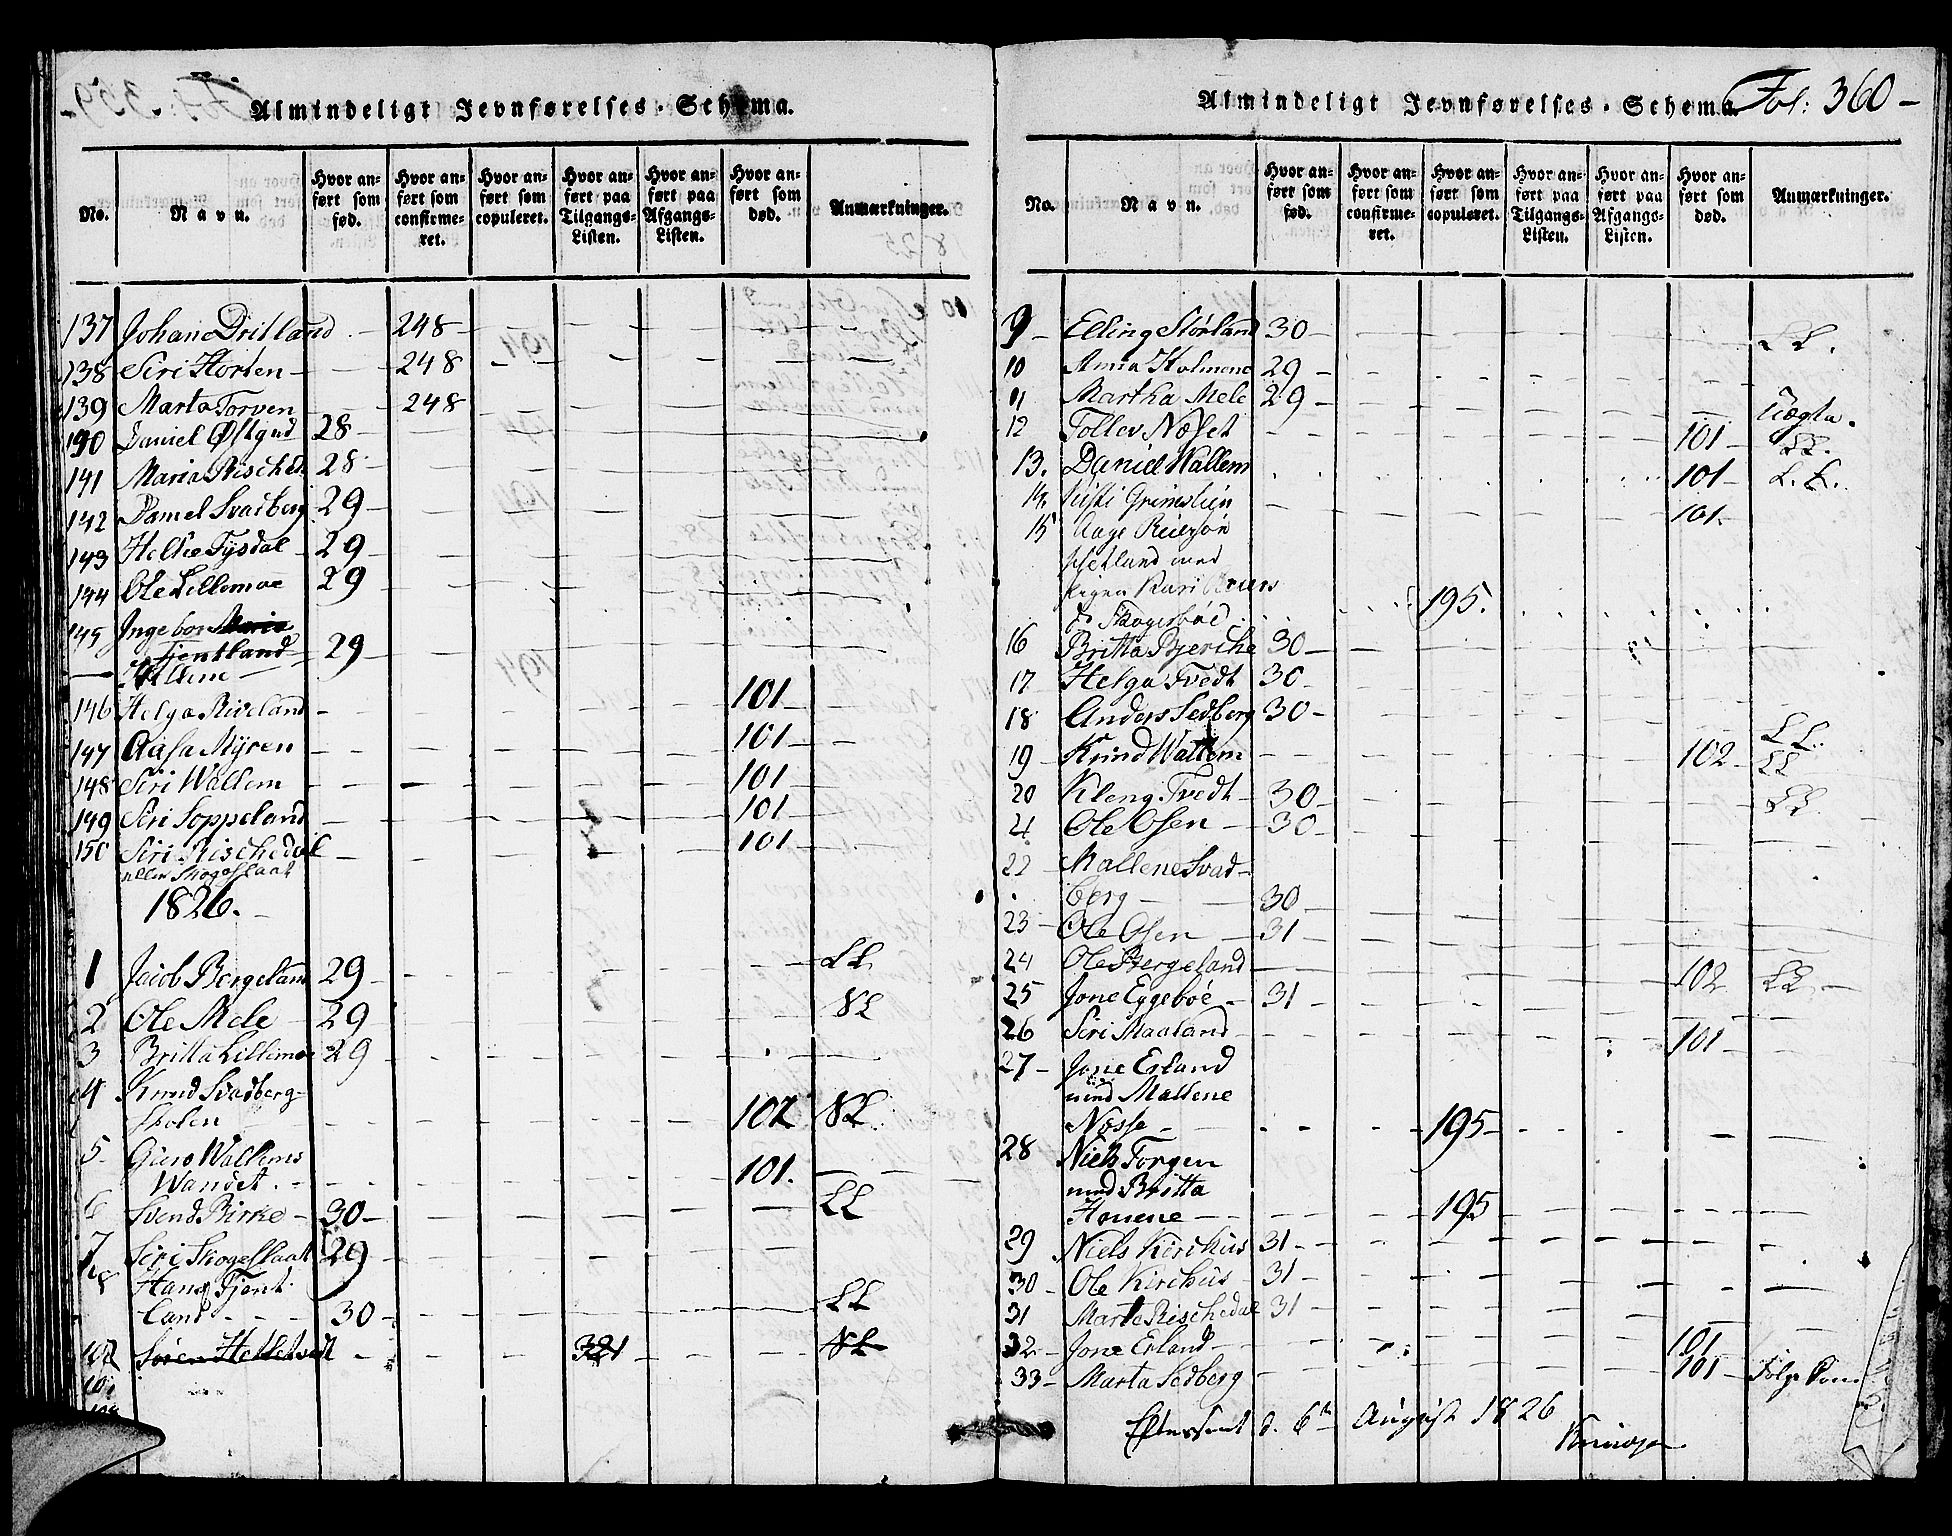 Almindeligt Jevnførelses-Schema.
No. Navn. Hvor anført som fød. Hvor anført som confirmeret. Hvor anført som copuleret. Hvor anført paa Tilgangs-Listen. Hvor anført paa Afgangs-Listen. Hvor anført som død. Anmærkninger.
137 Johan Dritland - 248
138 Siri Horten - 248
139 Marta Torven 248
190 Daniel Østgud 28
141 Maria Rischd 28
142 Daniel Svadberg 29
143 Helle Tysdal 29
144 Ole Lillemoe 29
145 Ingebor
Fjentland 29
146 Helga Riveland 101
147 Aasa Myren 101
148 Siri Wallem 101
149 Siri Soppeland 101
150 Siri Rischedal 101
eller Skogeslaat
1826.
1 Jacob Bergeland 29 LL
2 Ole Mele 29 NL
3 Britta Lillemoe 29
4 Knud Svadberg-
skolen 102 NL
5 Guro Wallems
Wandet. 101.
6 Svend Birke 30 LL
7 Siri Skogeslaat 29
8 Hans Fjent
land 30 LL
107 Søren Helletvedt 321 NL
Almindeligt Jevnførelses-Schema. Fol: 360
No. Navn. Hvor anført som fød. Hvor anført som confirmeret. Hvor anført som copuleret. Hvor anført paa Tilgangs-Listen. Hvor anført paa Afgangs-Listen. Hvor anført som død. Anmærkninger.
9 Elling Størland 30 LL.
10 Anna Holmene 29
11 Martha Mele 29 Uægta.
12 Tollev Næset 101 LL.
13. Daniel Wallem 101 L.L.
14. Kisti Grimslien 101.
15 Aage Reierson
Pige Kari
Skogesbøe 195.
16 Britta Bjerche 30
17 Helga Tvedt 30
18 Anders Sedberg 30 LL.
19 Knud Wallem 102 LL
20 Kleng Tvedt 30 LL
21 Ole Osen 30
22 Mallene Svad-
berg 30
23 Ole Osen 31
24 Ole Bergeland 102 LL
25 Jone Eggebøe 31
26 Siri Maaland 101
27 Jone Erland
med Mallene
Nosse 195
28 Niels Torgen
med Britta
Houene 195
29 Niels Kirchus 31
30 Ole Kirchus 31
31 Marte Rischedal 31
32 Jone Erland 101
33 Marta Sedberg 101
Efterseet d. 6te August 1826